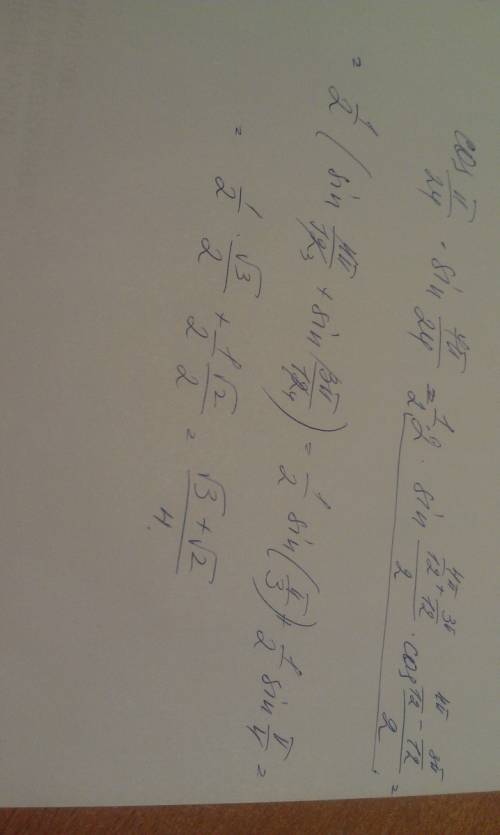 cos π/24 · sin 7π/24 = 1/2 · 2 · sin (4π/12 + 3π/12)/2 · cos (4π/12 − 3π/12)/2 =
= 1/2 (sin 4π/12 3 + sin 3π/12 4) = 1/2 sin(π/3) + 1/2 sin π/4 =
= 1/2 · √3/2 + 1/2 √2/2 = (√3 + √2)/4.